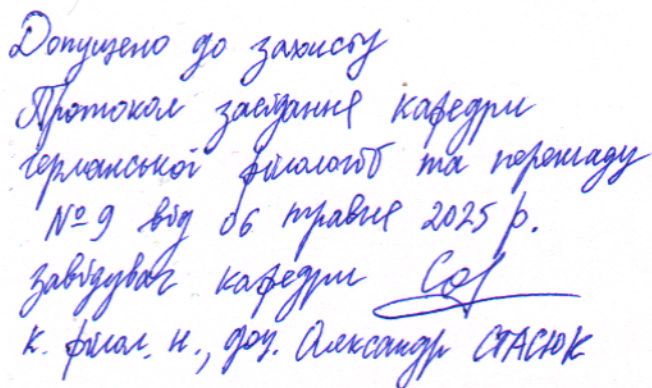 Допущено до захисту
Протокол засідання кафедри
германської філології та перекладу
№9 від 06 травня 2025 р.
завідувач кафедри
к. філол. н., доц. Олександр СТАСЮК